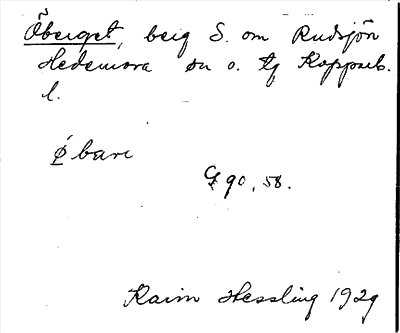 Öberget, berg S. om Rudsjön
Hedemora sn o. tg Kopparb.
l.
ø̀ bare
G 90, 58.
Karin Hessling 1929